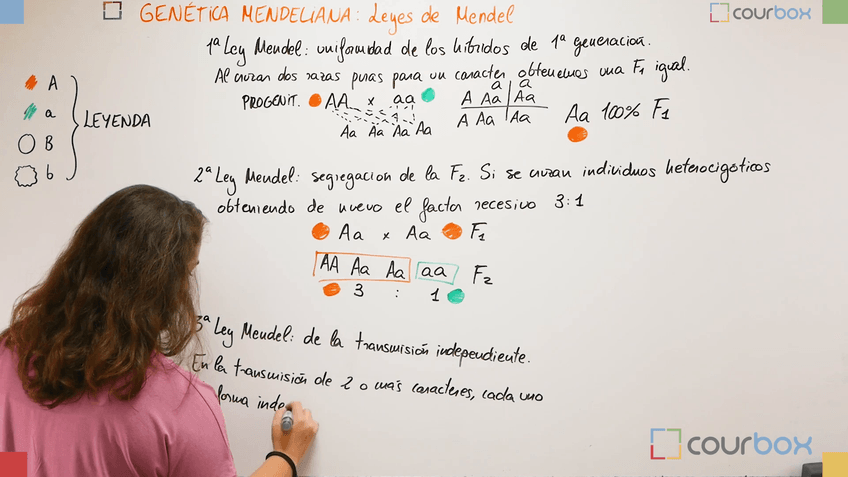 GENÉTICA MENDELIANA: Leyes de Mendel
courbox
1ª Ley Mendel: uniformidad de los híbridos de 1ª generacion.
Al cruzan dos razas puras para un caracter obtenemos una F1 igual.
PROGENIT. AA x aa
Aa Aa Aa Aa
a a
A Aa Aa
A Aa Aa
Aa 100% F1
A
a
B
b
LEYENDA
2ª Ley Mendel: segregacion de la F2. Si se cruzan individuos heterocigóticos
obteniendo de nuevo el factor recesivo 3:1
Aa x Aa F1
AA Aa Aa aa F2
3 : 1
3ª Ley Mendel: de la transmisión independiente.
En la transmisión de 2 o más caracteres, cada uno
forma inde
courbox